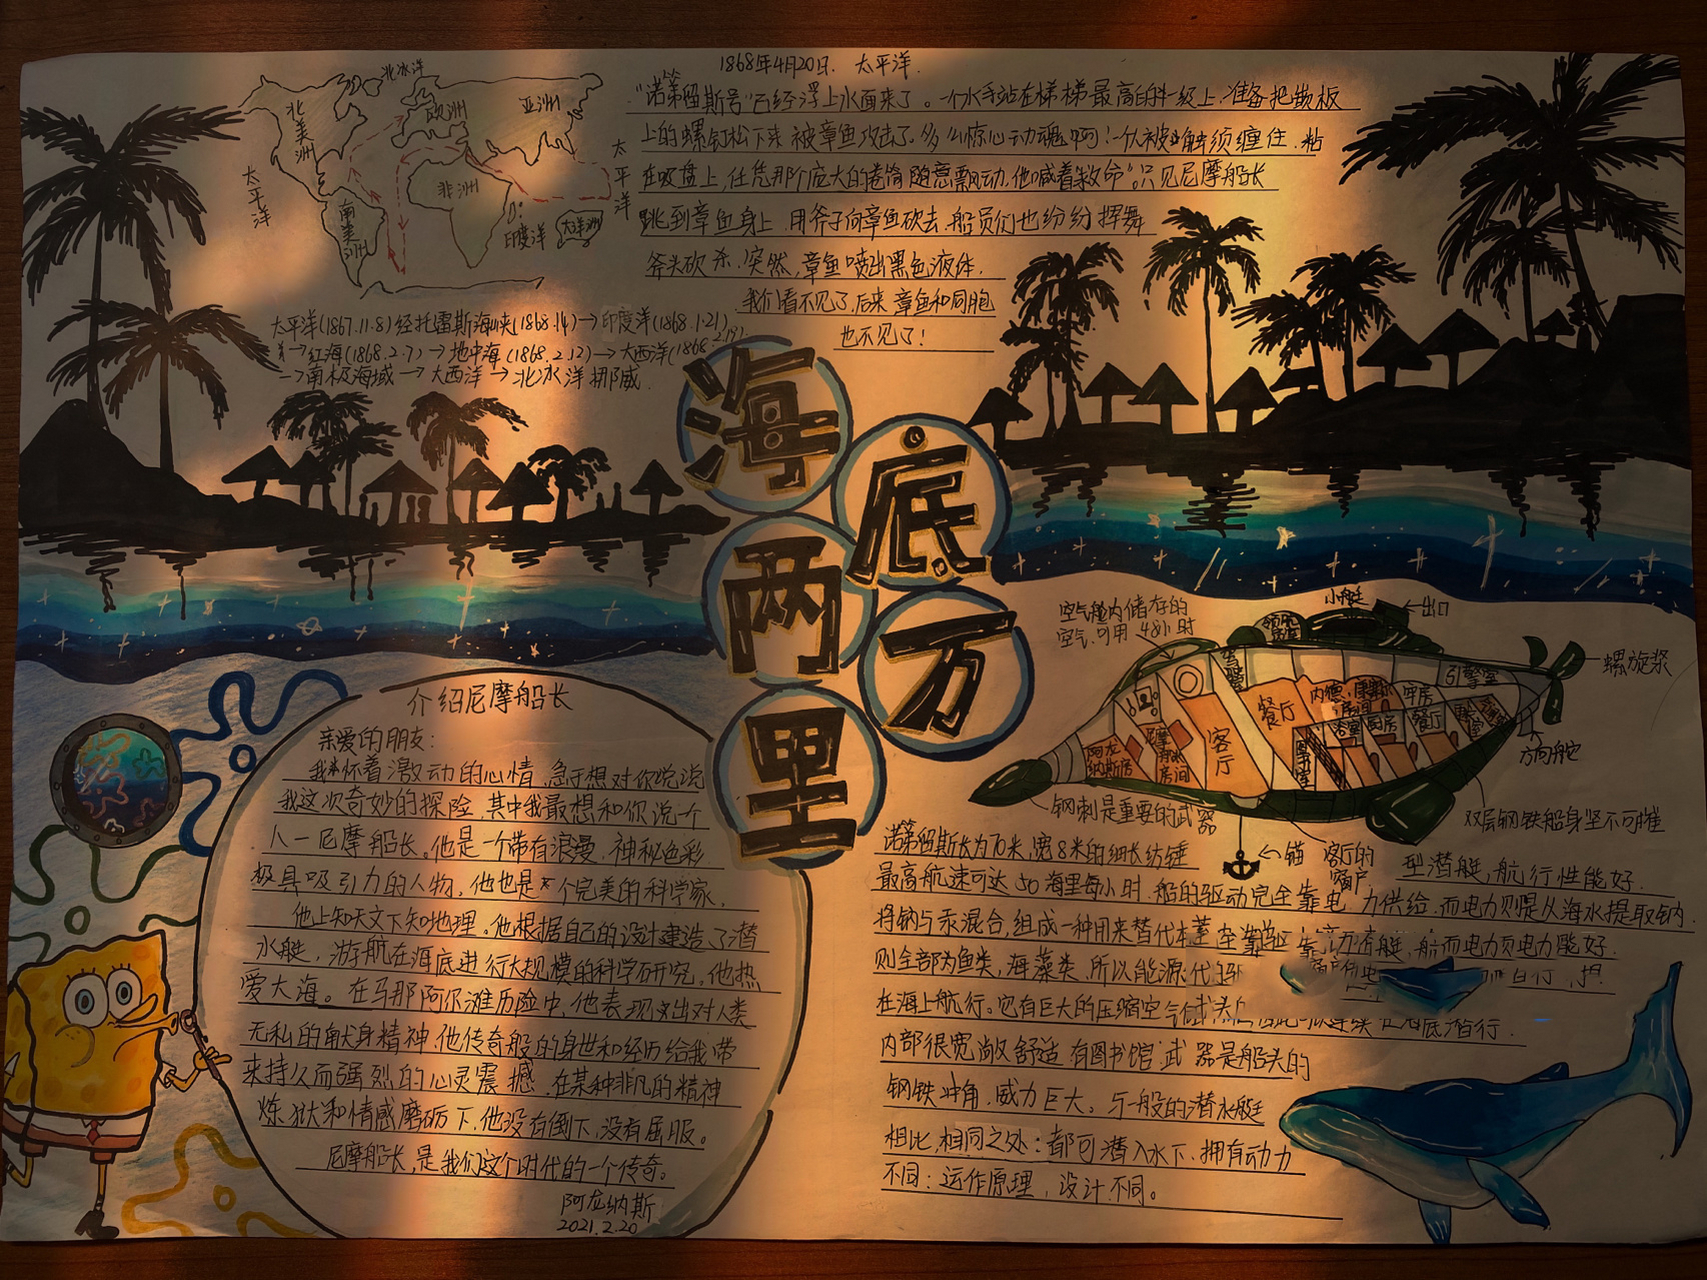 北冰洋
北美洲
欧洲
亚洲
太平洋
太平洋
非洲
南美洲
印度洋
大洋洲
太平洋(1867.11.8)经托雷斯海峡(1868.1.4)→印度洋(1868.1.21)
→红海(1868.2.7)→地中海(1868.2.12)→大西洋(1868.2.19)
→南极海域→大西洋→北冰洋挪威.
1868年4月20日. 太平洋.
"诺第留斯号"已经浮上水面来了。一个水手站在梯梯最高的斗级上.准备把嵌板
上的螺钉松下来 被章鱼攻击了。多么惊心动魂啊!一人被触须缠住.粘
在吸盘上,任凭那个庞大的卷筒随意飘动.他喊着"救命"。只见尼摩船长
跳到章鱼身上 用斧子向章鱼砍去.船员们也纷纷挥舞
斧头砍杀.突然,章鱼喷出黑色液体.
我们看不见了.后来 章鱼和同胞
也不见了!
海底两万里
介绍尼摩船长
亲爱的朋友:
我怀着激动的心情.急于想对你说说
我这次奇妙的探险.其中我最想和你说一个
人—尼摩船长.他是一个带有浪漫.神秘色彩
极具吸引力的人物.他也是个完美的科学家.
他上知天文下知地理。他根据自己的设计建造了潜
水艇,游航在海底进行大规模的科学研究.他热
爱大海。在马那阿尔滩历险中,他表现出对人类
无私的献身精神.他传奇般的身世和经历给我带
来持久而强烈的心灵震撼.在某种非凡的精神
炼狱和情感磨砺下.他没有倒下.没有屈服。
尼摩船长,是我们这个时代的一个传奇。
阿龙纳斯
2021.2.20
空气舱内储存的
空气.可用48小时
小艇
出口
螺旋桨
引擎室
餐厅
客厅
厨房
浴室
图书室
尼摩船长房间
阿龙纳斯房
方向舵
钢刺是重要的武器
锚
客厅的窗户
双层钢铁船身坚不可摧
诺第留斯长为70米,宽8米的细长纺锤型潜艇,航行性能好.
最高航速可达50海里每小时.船的驱动完全靠电力供给.而电力则是从海水提取钠.
将钠与汞混合,组成一种用来替代
则全部为鱼类,海藻类.所以能源
在海上航行。它有巨大的压缩空气
内部很宽敞舒适 有图书馆.武器是船头的
钢铁冲角.威力巨大。与一般的潜水艇
相比,相同之处:都可潜入水下.拥有动力
不同:运作原理,设计不同。